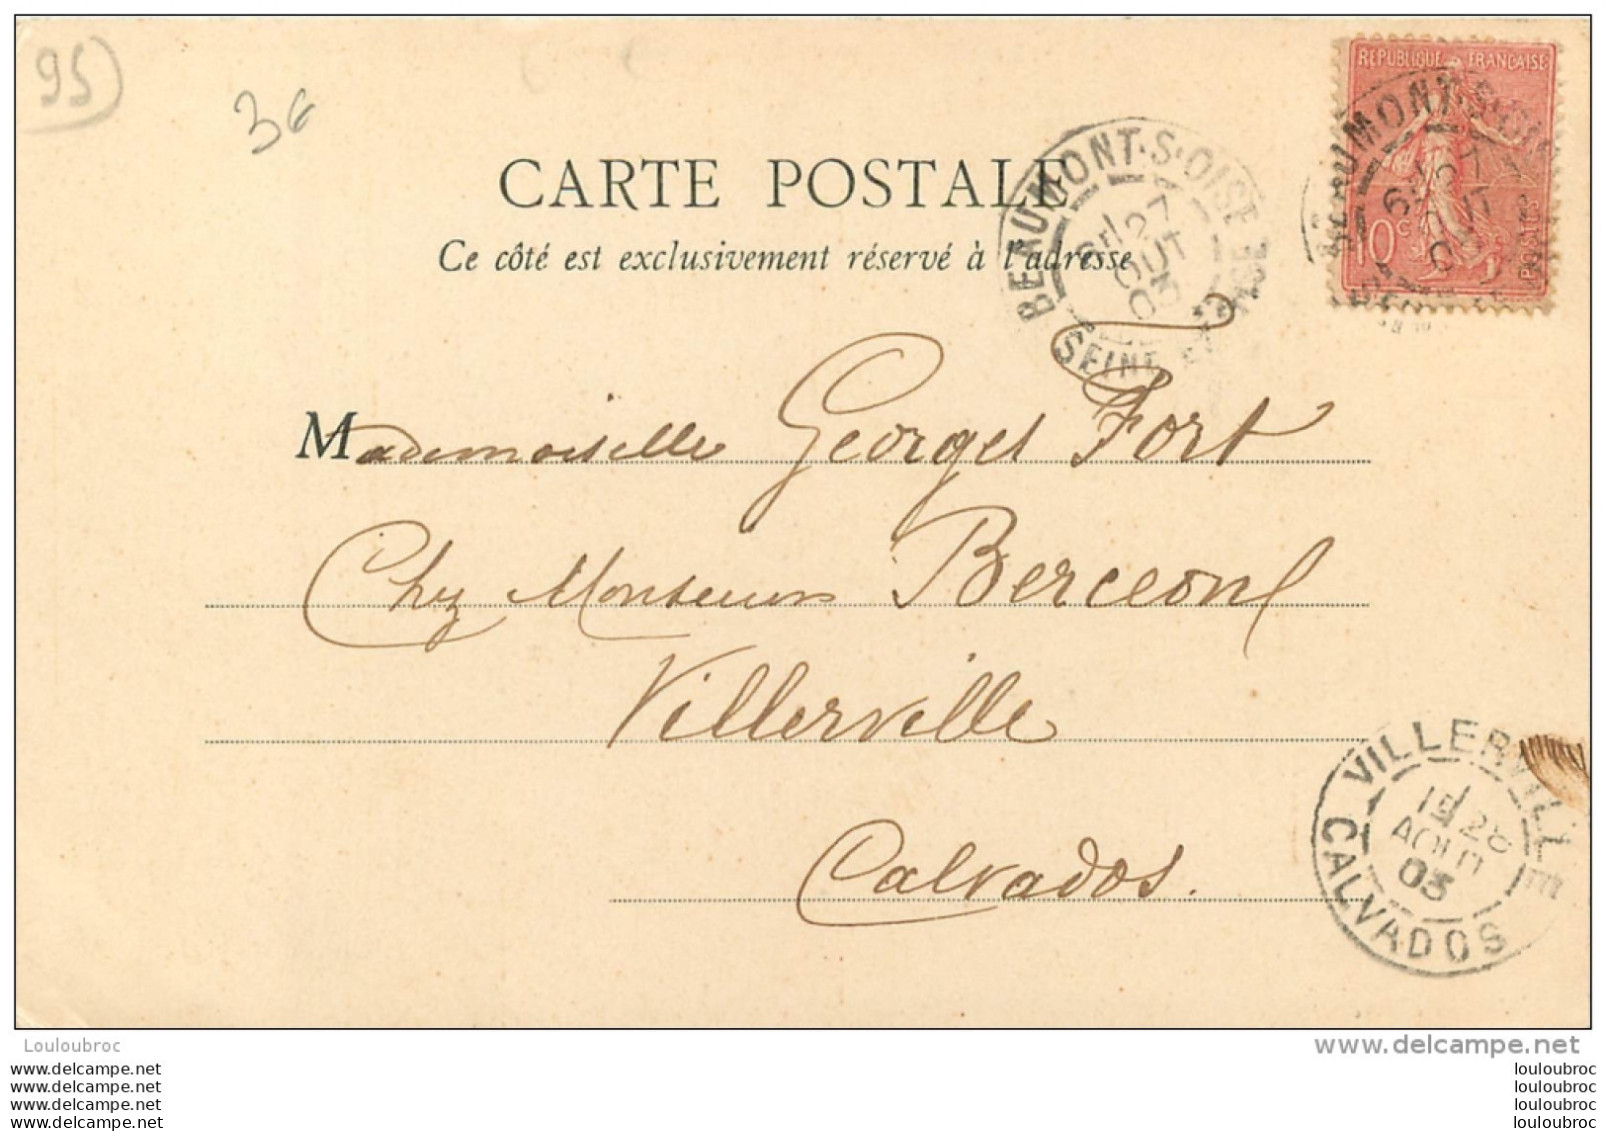 95
3€
CARTE POSTALE
Ce côté est exclusivement réservé à l'adresse
BEAUMONT-S-OISE
6E 27
OUT
03
SEINE
REPUBLIQUE FRANÇAISE
10c
POSTES
Mademoiselle Georges Fort
Chez Monsieur Berceon
Villerville
Calvados.
VILLERVILLE
1E 28
AOUT
03
CALVADOS
Louloubroc
www.delcampe.net
www.delcampe.net
www.delcampe.net
www.delcampe.net
www.delcampe.net
louloubroc
louloubroc
louloubroc
louloubroc